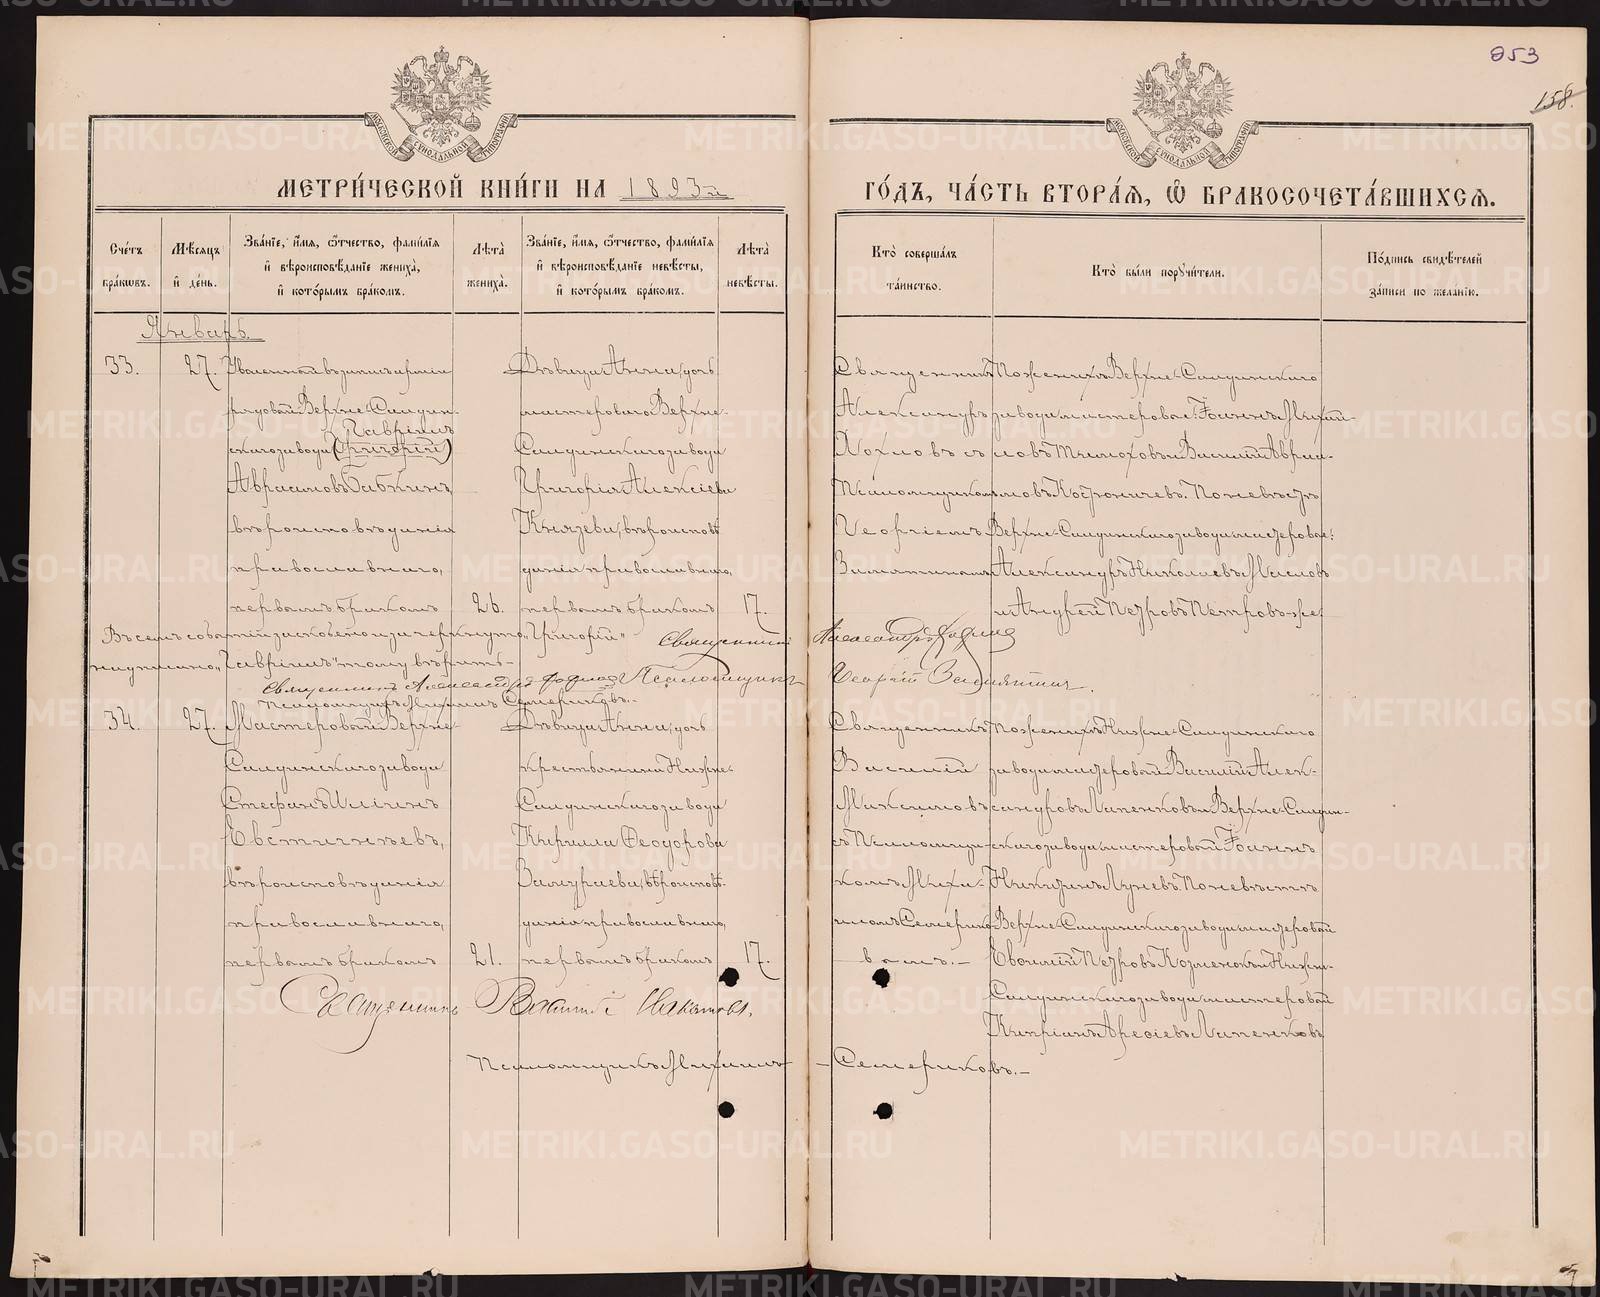 953
158.
МЕТРИ́ЧЕСКОЙ КНИ́ГИ НА 1893й
ГО́ДЪ, ЧА́СТЬ ВТОРА́Я, Ѿ БРАКОСОЧЕТА́ВШИХСЯ.
Сче́тъ бра́кѡвъ.
Мѣ́сяцъ и҆ де́нь.
Зва́нїе, и҆́мя, ѻ҆́тчество, фами́лїя
и҆ вѣроисповѣ́данїе жениха̀,
и҆ кото́рымъ бра́комъ.
Лѣта̀ жениха̀.
Зва́нїе, и҆́мя, ѻ҆́тчество, фами́лїя
и҆ вѣроисповѣ́данїе невѣ́сты,
и҆ кото́рымъ бра́комъ.
Лѣта̀ невѣ́сты.
Кто̀ соверша́лъ та́инство.
Кто̀ бы́ли порꙋчи́тели.
По́дпись свидѣ́телей за́писи по жела́нїю.
Январь.
33.
27.
Уволенный въ запасъ арміи
рядовой Верхне-Салдин-
Гавріилъ
скаго завода (Григорій)
Аврамовъ Бабкинъ,
вѣроисповѣданія
православнаго,
первымъ бракомъ
26.
Дѣвица Анна, дочь
мастероваго Верхне-
Салдинскаго завода
Григорія Алексіева
Князева, вѣроисповѣ
данія православнаго,
первымъ бракомъ
17.
Священникъ
Александръ
Хохловъ съ
псаломщикомъ
Георгіемъ
Замятинымъ
По женихѣ Верхне-Салдинскаго
завода мастеровые: Іоаннъ Михай-
ловъ Тимоховъ и Василій Авраа-
мовъ Костюничевъ. По невѣстѣ
Верхне-Салдинскаго завода мастеровые:
Александръ Николаевъ Масловъ
и Андрей Петровъ Петровъ-же.
Въ семъ событіи за скобено и зачеркнуто „Григорій“
надписано „Гавріилъ“ тому вѣрить-
Священникъ Александръ Хохловъ
Псаломщикъ Георгій Замятинъ.
Священникъ Александръ Хохловъ
Псаломщикъ Михаилъ Семериковъ.
34.
27.
Мастеровой Верхне-
Салдинскаго завода
Стефанъ Иліинъ
Евстигнѣевъ,
вѣроисповѣданія
православнаго,
первымъ бракомъ
21.
Дѣвица Анна, дочь
крестьянина Нижне-
Салдинскаго завода
Кирилла Ѳеодорова
Замураева, вѣроисповѣ-
данія православнаго,
первымъ бракомъ
17.
Священникъ
Василій
Максимовъ
съ Псаломщи-
комъ Миха-
иломъ Семерико-
вымъ.-
По женихѣ Нижне-Салдинскаго
завода мастеровой Василій Алек-
сандровъ Лапенковъ и Верхне-Салдин-
скаго завода мастеровой Іоаннъ
Никитинъ Луневъ. По невѣстѣ
Верхне-Салдинскаго завода мастеровой
Евѳимій Петровъ Козменокъ и Нижне-
Салдинскаго завода мастеровой
Кипріанъ Арефіевъ Лапенковъ
Священникъ Василій Максимовъ.
Псаломщикъ Михаилъ Семериковъ.-
METRIKI.GASO-URAL.RU